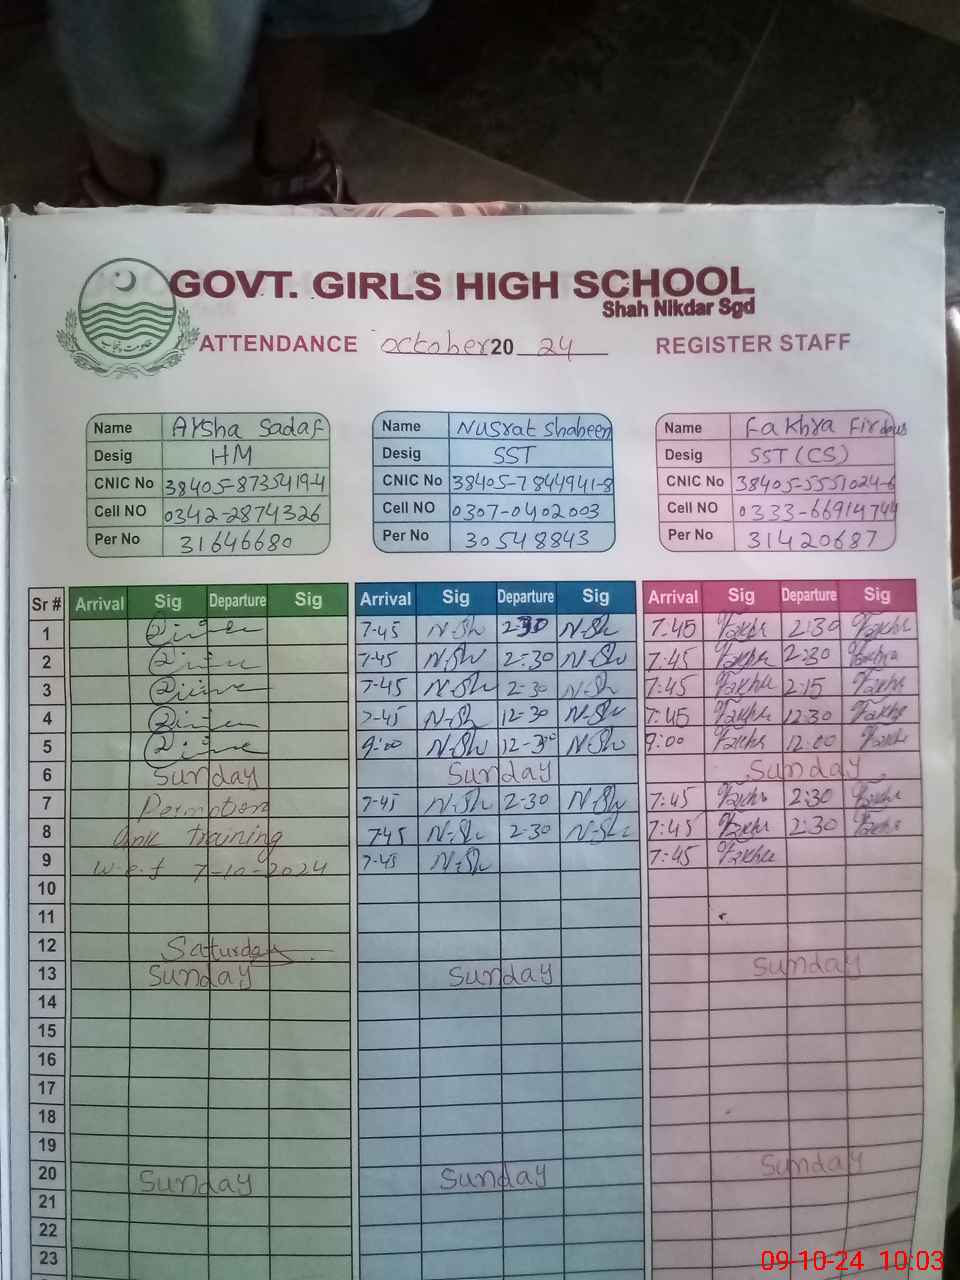 GOVT. GIRLS HIGH SCHOOL
Shah Nikdar Sgd
حکومت پنجاب
ATTENDANCE October 20 24 REGISTER STAFF
Name Aysha Sadaf Name Nusrat Shaheen Name Fakhra Firdous
Desig HM Desig SST Desig SST (CS)
CNIC No 38405-8735419-4 CNIC No 38405-7844941-8 CNIC No 38405-5551024-6
Cell NO 0342-2874326 Cell NO 0307-0402003 Cell NO 0333-6691474
Per No 31646680 Per No 30548843 Per No 31420687
Sr # Arrival Sig Departure Sig Arrival Sig Departure Sig Arrival Sig Departure Sig
1 7-45 N-Sh 2-30 N-Sh 7:45 Fakhra 2:30 Fakhra
2 7-45 N-Sh 2:30 N-Sh 7:45 Fakhra 2:30 Fakhra
3 7-45 N-Sh 2-30 N-Sh 7:45 Fakhra 2:15 Fakhra
4 7-45 N-Sh 12-30 N-Sh 7:45 Fakhra 12:30 Fakhra
5 9:00 N-Sh 12-30 N-Sh 9:00 Fakhra 12:00 Fakhra
6 Sunday Sunday Sunday
7 7-45 N-Sh 2:30 N-Sh 7:45 Fakhra 2:30 Fakhra
8 training 745 N-Sh 2-30 N-Sh 7:45 Fakhra 2:30 Fakhra
9 w.e.f 7-10-2024 7-45 N-Sh 7:45 Fakhra
10
11
12 Saturday
13 Sunday Sunday Sunday
14
15
16
17
18
19
20 Sunday Sunday Sunday
21
22
23
09-10-24 10:03